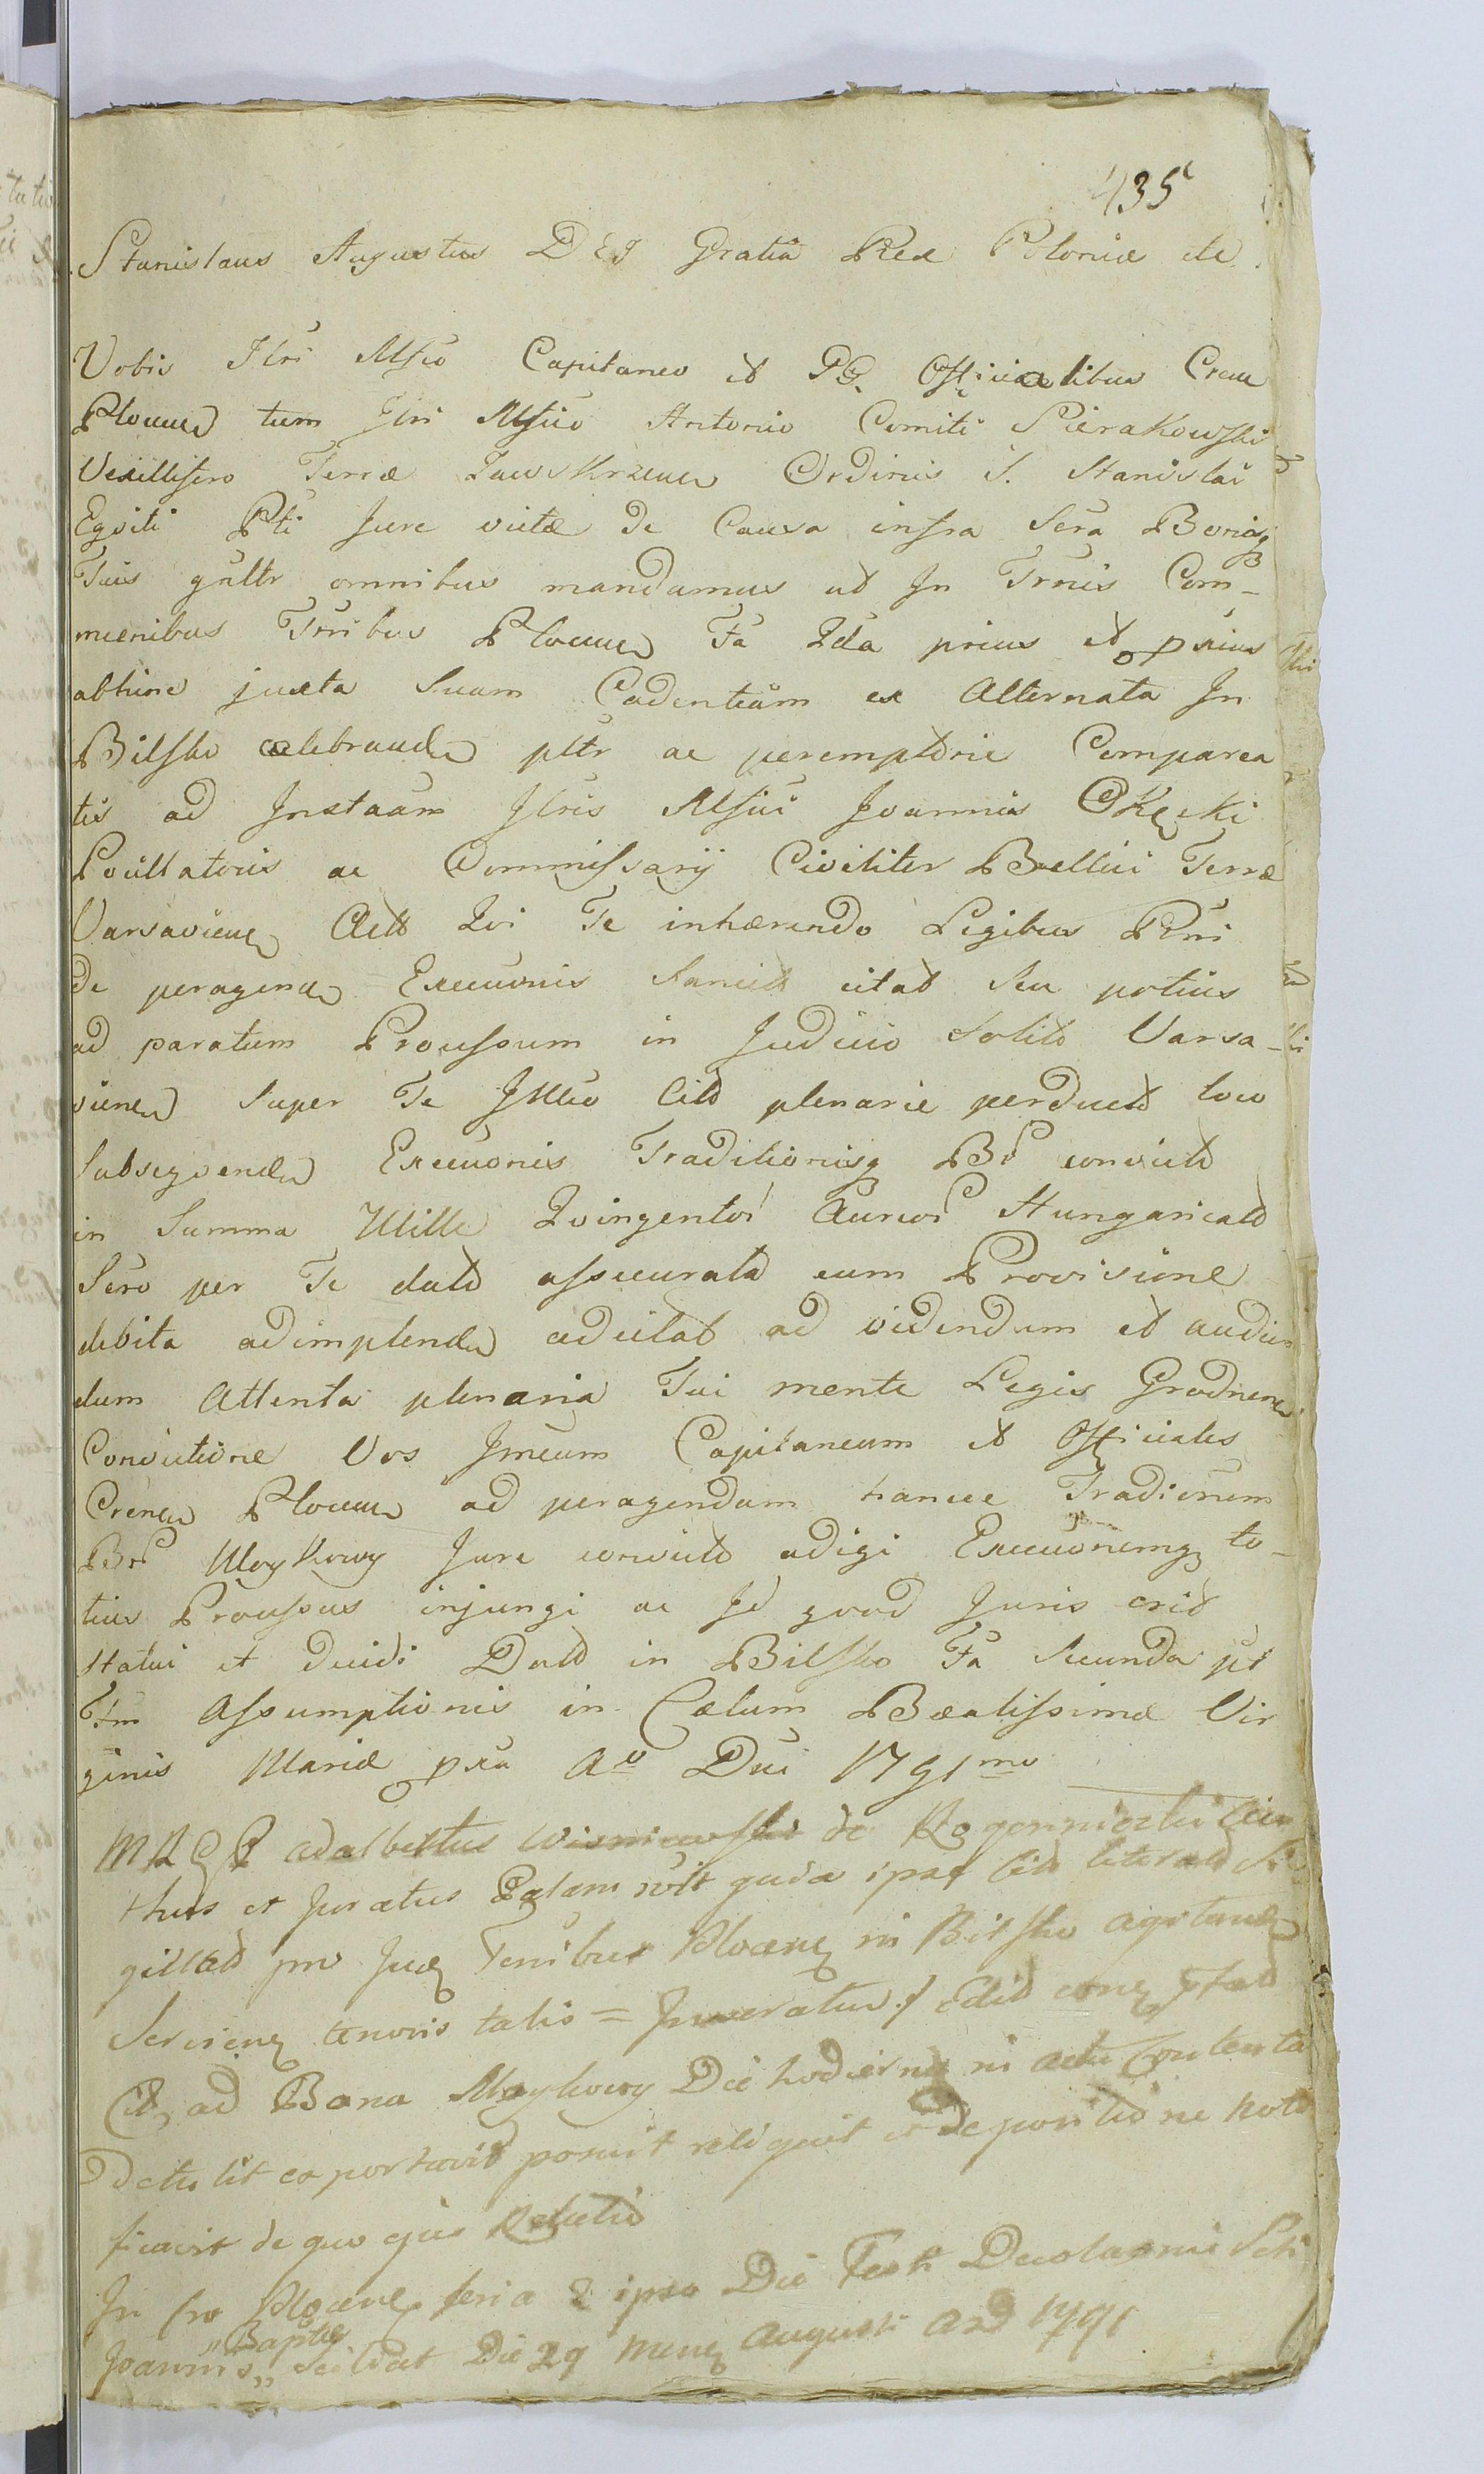 435
Stanislaus Augustus DEI Gratia Rex Poloniæ etc.
Vobis Illri Mfico Capitaneo et PG. Officialibus Cren
Plocen tum Illri Mfico Antonio Comiti Sierakowski
Vexillifero Terræ Zawskrzen Ordinis S. Stanislai
Eqviti Pti Jure victæ de Causa infra Scra Bonisq
Tuis gnltr omnibus mandamus ut In Trnis Com-
munibus Trribus Plocen Fa 2da prius et pxius
abhinc juxta Suam Cadentiam ex Alternata In
Bilsko celebrand pltr ac peremptorie Comparea
tis ad Instaam Illris Mfici Joannis Okęcki
Pocillatoris ac Commissarij Civiliter Bellici Terræ
Varsavien Actt Qvi Te inhærendo Legibus Rni
de peragend Execuonis Sancitt citat Seu potius
ad paratum Processum in Judicio Solito Varsa-
vien Super Te Illco Citt plenarie perductt loco
Subseqvend Execuonis Traditionisq Br convictt
in Summa Mille Qvingentor Aureor Hungaricatt
Scro per Te datto assecuratt cum Provisione
debita adimplend adcitat ad videndum et audien
dum Attenta plenaria Tui mente Legis Grodnen
Convictione Vos Imeum Capitaneum et Officiales
Crenen Plocen ad peragendam hancce Tradionem
Bror Moykowy Jure convictt adigi Execuonemq to-
tius Processus injungi ac Id qvod Juris erit
statui et decidi Datt in Bilsko Fa Secunda pt
Ftm Assumptionis in Cælum Beatissimæ Vir
ginis Mariæ pxa Ao Dni 1791mo
adalbertus Wisniewski de
thus et Juratus Palam ipse literatt Si
gillatt pro Jud Tenibus Plocen in Bilsko agitand
Servien tenoris talis = Inseratur. / Edit
ad Bona Moykowy Die hodierna in actu Contenta
Detulit exportavit posuit reliquit et de positione noti
ficavit de quo ejus Relatio
In Cro Plocen feria 2 ipso Die Festi Decolaonis Scti
Joannis „Baptæ„ Scilicet Die 29 Mens Augusti ao 1791